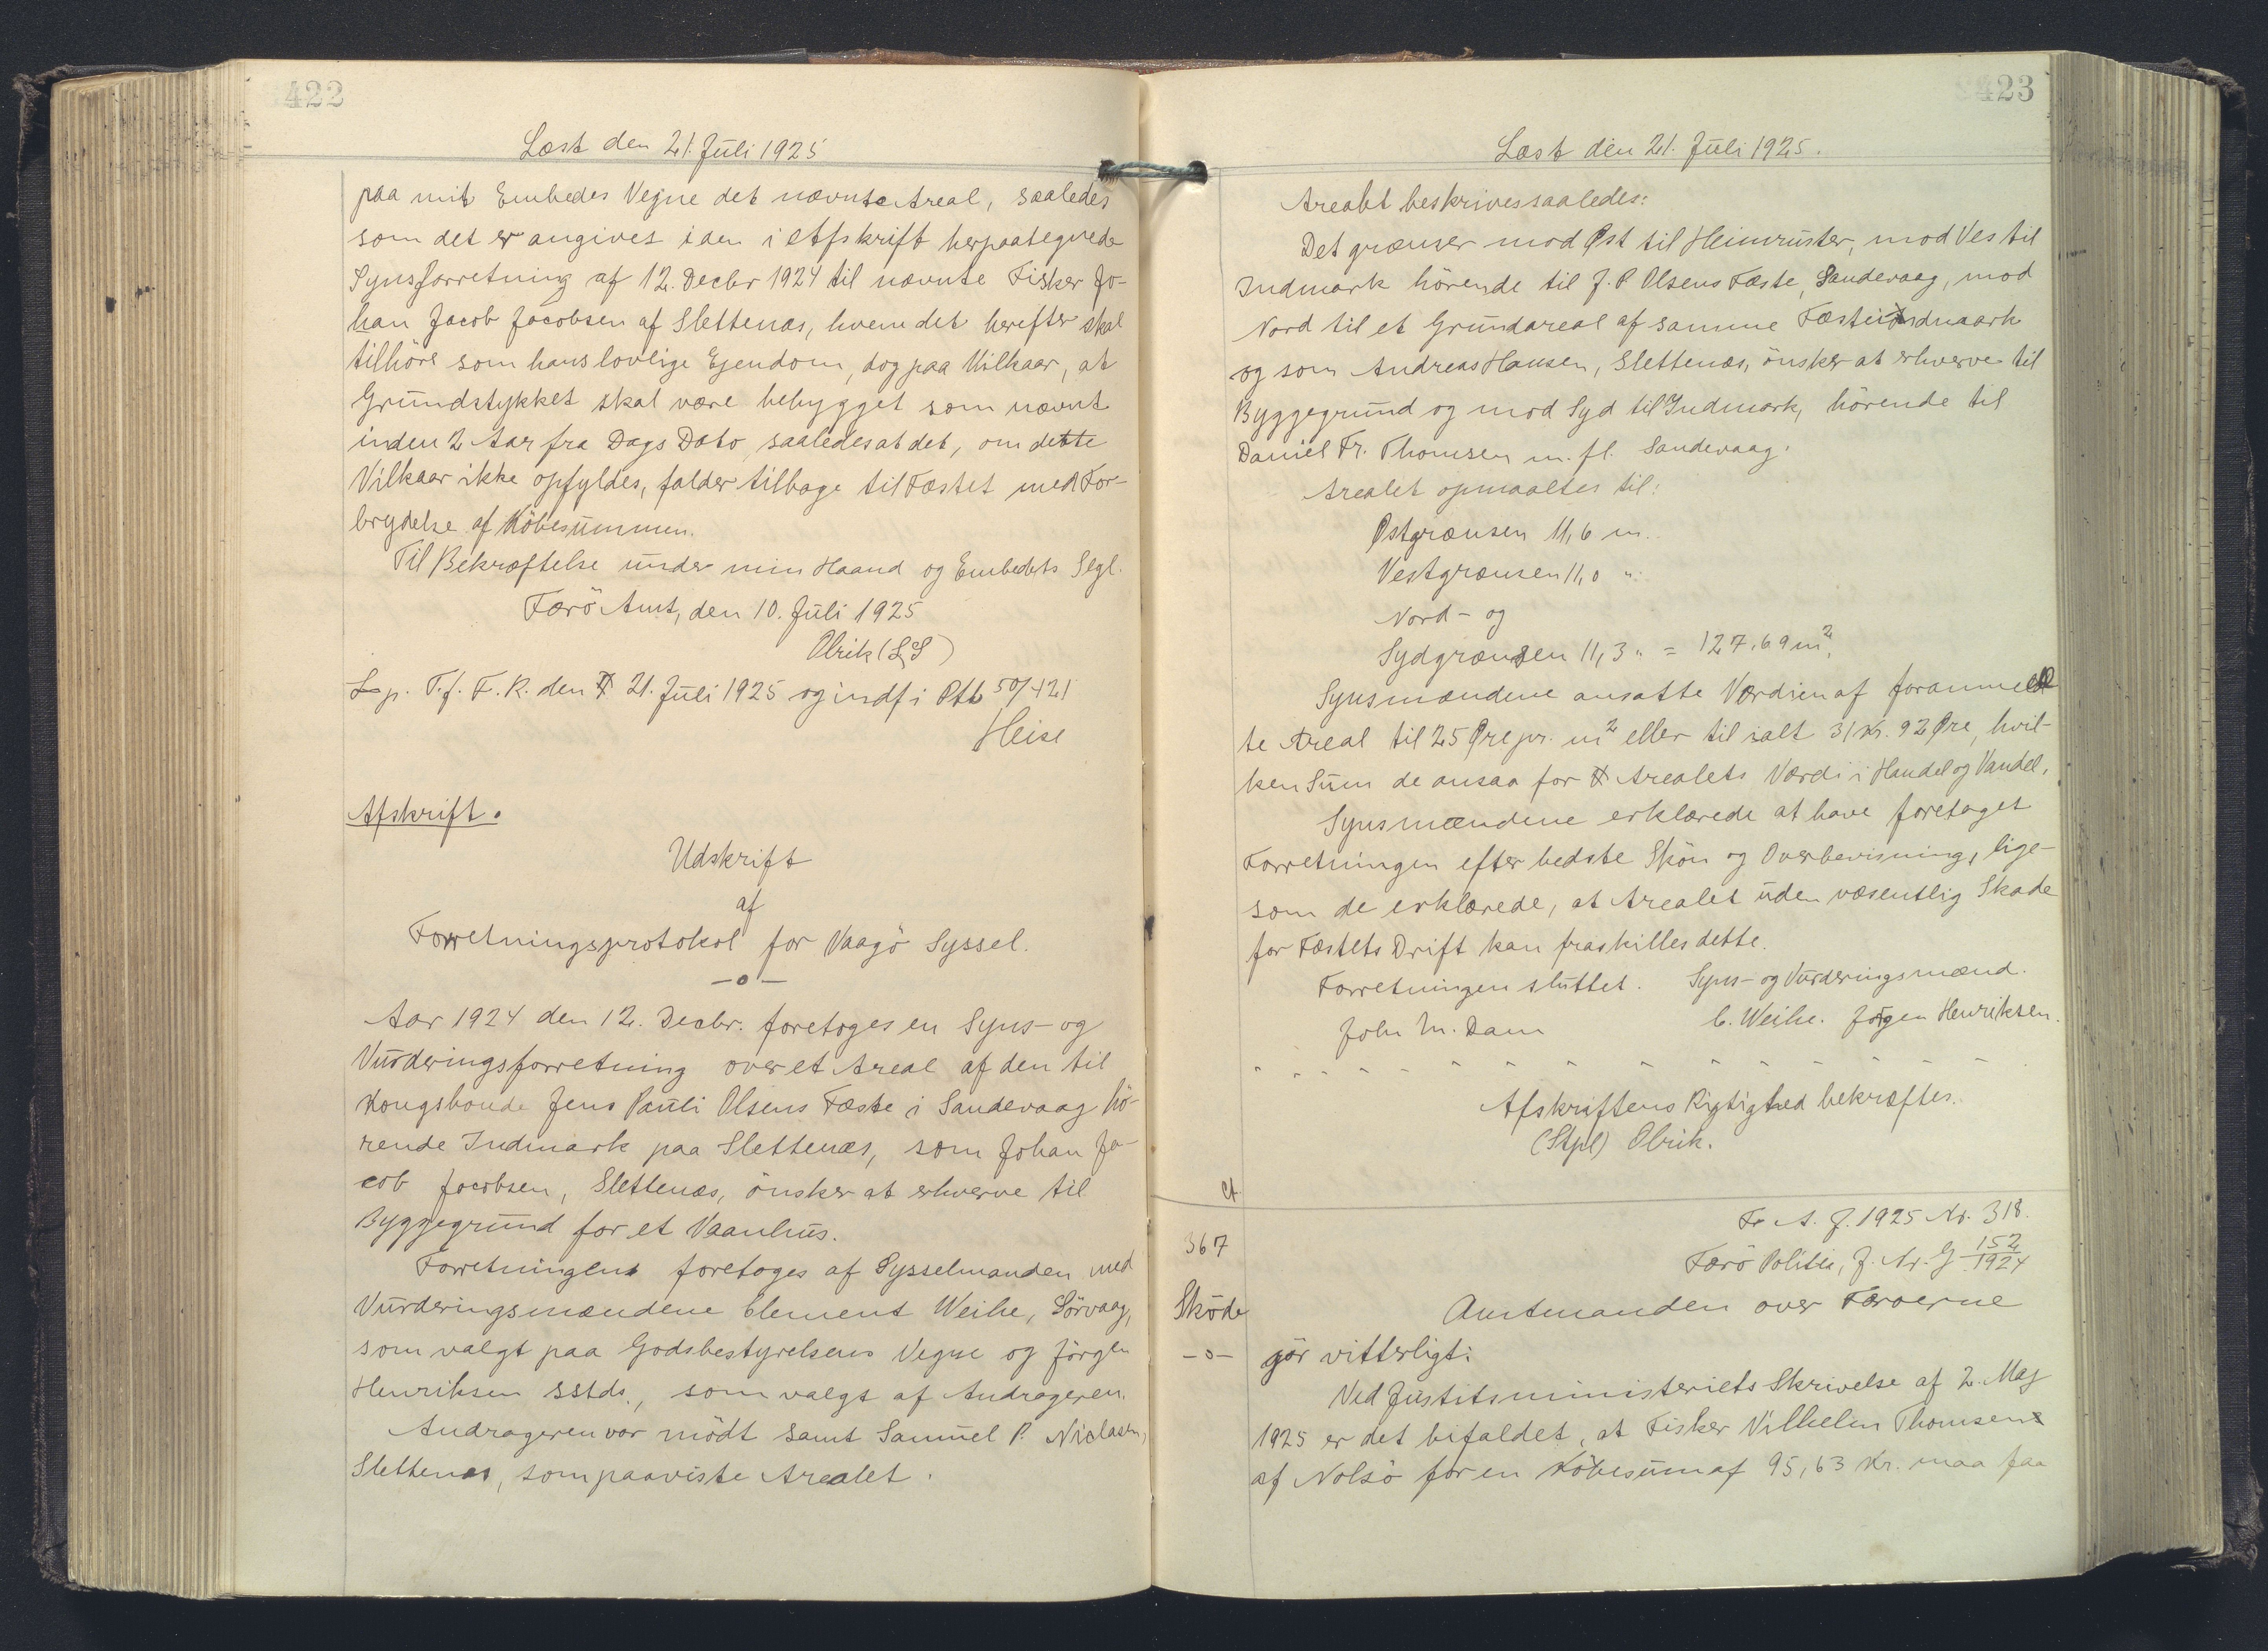 422
Læst den 21. Juli 1925
paa mit Embedes Vegne det nævnte Areal, saaledes
som det er angives i den i Afskrift herpaategnede
Synsforretning af 12. Decbr 1924 til nævnte Fisker Jo-
han Jacob Jacobsen af Slettenæs, hvem det herefter skal
tilhöre som hans lovlige Ejendom, dog paa Vilkaar, at
Grundstykket skal være bebygget som nævnt
inden 2 Aar fra Dags Dato saaledes at det, om dette
Vilkaar ikke opfyldes, falder tilbage til Fæstet med For-
brydelse af Köbesummen.
Til Bekræftelse under min Haand og Embedets Segl.
Færö Amt, den 10. Juli 1925
Olrik (L.S)
L. p. T. f. F. R. den 21. Juli 1925 og indf i Ptb 50/421
Heise
Afskrift.
Udskrift
af
Forretningsprotokol for Vaagö Syssel.
-o-
Aar 1924 den 12. Decbr. foretoges en Syns- og
Vurderingsforretning over et Areal af den til
Kongsbonde Jens Pauli Olsens Fæste i Sandevaag hö-
rende Indmark paa Slettenæs, som Johan Ja-
cob Jacobsen, Slettenæs, önsker at erhverve til
Byggegrund for et Vaanhus.
Forretningen foretoges af Sysselmanden med
Vurderingsmændene Clement Weihe, Sörvaag,
som valgt paa Godsbestyrelsens Vegne og Jörgen
Henriksen sstds., som valgt af Andrageren.
Andrageren var mödt samt Samuel P. Niclasen,
Slettenæs, som paaviste Arealet.
423
Læst den 21. Juli 1925.
Arealet beskrives saaledes:
Det grænser mod Øst til Heimruster, mod Ves til
Indmark hörende til J. P. Olsens Fæste, Sandevaag, mod
Nord til et Grundareal af samme Fæsteindmark
og som Andreas Hansen, Slettenæs, önsker at erhverve til
Byggegrund og mod Syd til Indmark, hörende til
Daniel Fr. Thomsen m. fl. Sandevaag.
Arealet opmaaltes til:
Østgrænsen 11,6 m.
Vestgrænsen 11,0 "
Nord- og
Sydgrænsen 11,3 " = 127,69 m².
Synsmændene ansatte Værdien af foranmeld
te Areal til 25 Øre pr. m² eller til ialt 31 Kr. 92 Øre, hvil-
ken Sum de ansaa for Arealets Værdi i Handel og Vandel.
Synsmændene erklærede at have foretaget
Forretningen efter bedste Skön og Overbevisning, lige-
som de erklærede, at Arealet uden væsentlig Skade
for Fæstets Drift kan fraskilles dette.
Forretningen sluttet. Syns- og Vurderingsmænd.
John M. Dam C. Weihe. Jörgen Henriksen.
Afskriftens Rigtighed bekræftes.
(Stpl) Olrik.
Fr A. J. 1925 Nr. 318.
367 Færö Politi, J. Nr. G 152/1924
Sköde Amtmanden over Færöerne
-o- gör vitterligt:
Ved Justitsministeriets Skrivelse af 2. Maj
1925 er det bifaldet, at Fisker Vilhelm Thomsen
af Nolsö for en Köbesum af 95,63 Kr. maa faa